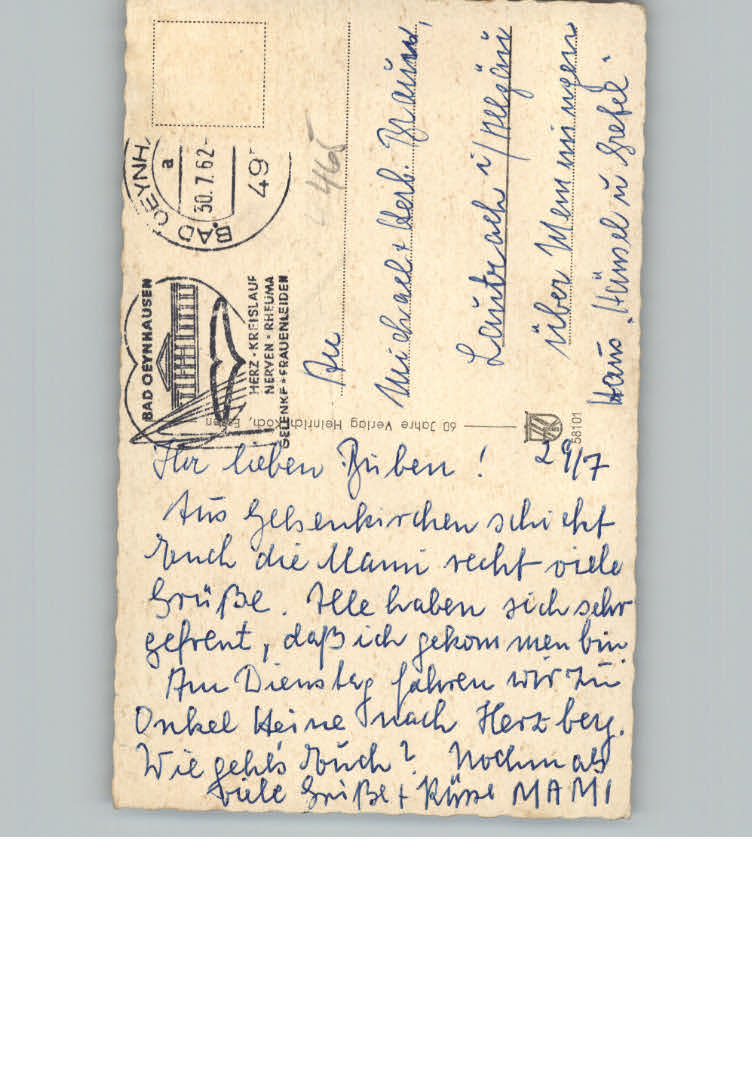 Ihr lieben Buben! 29/7
Aus Gelsenkirchen schickt
Euch die Mami recht viele
Grüße. Alle haben sich sehr
gefreut, daß ich gekommen bin
Am Dienstag fahren wir zu
Onkel Heine nach Herzberg.
Wie geht's Euch? Nochmals
viele Grüße + Küsse MAMI
An
Michael + Herb. Braun,
Lautrach i/Allgäu
über Memmingen
Haus "Hänsel u Gretel"
BAD OEYNH.
a
30.7.62-
49
465
BAD OEYNHAUSEN
HERZ·KREISLAUF
NERVEN·RHEUMA
GELENKE·FRAUENLEIDEN
60 Jahre Verlag Heinrich Koch, Essen
58101